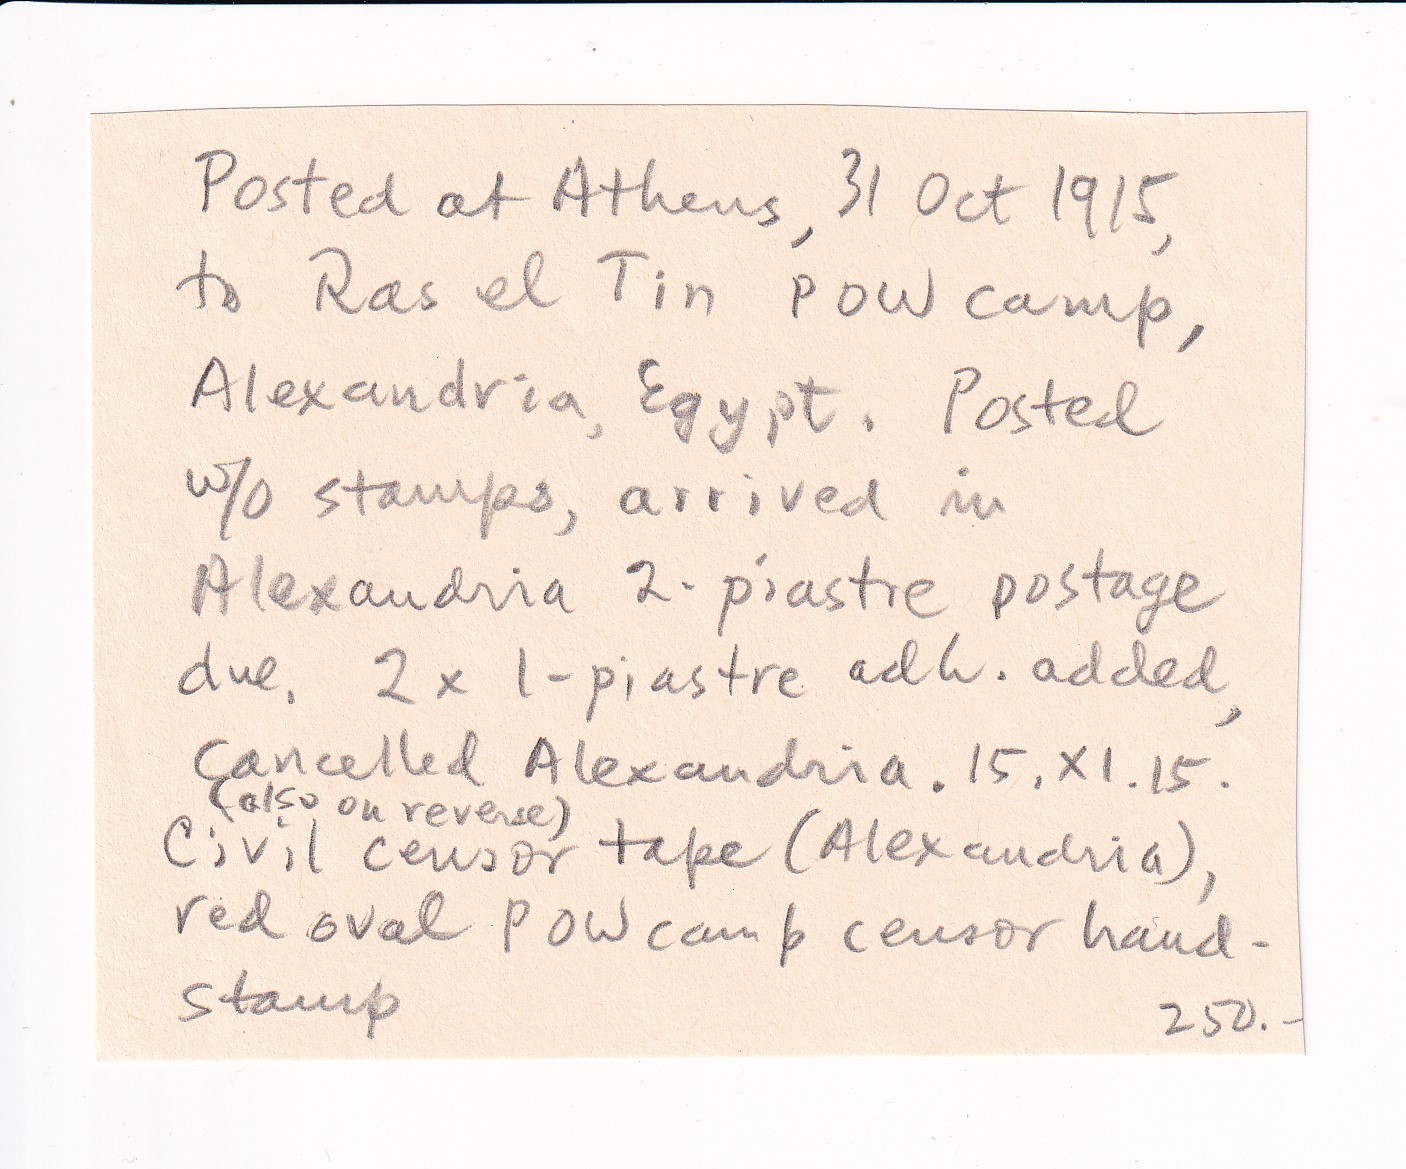 Posted at Athens, 31 Oct 1915,
to Ras el Tin POW camp,
Alexandria, Egypt. Posted
w/o stamps, arrived in
Alexandria 2-piastre postage
due. 2 x 1-piastre adh. added,
cancelled Alexandria. 15.XI.15.
(also on reverse)
Civil censor tape (Alexandria),
red oval POW camp censor hand-
stamp
250.-